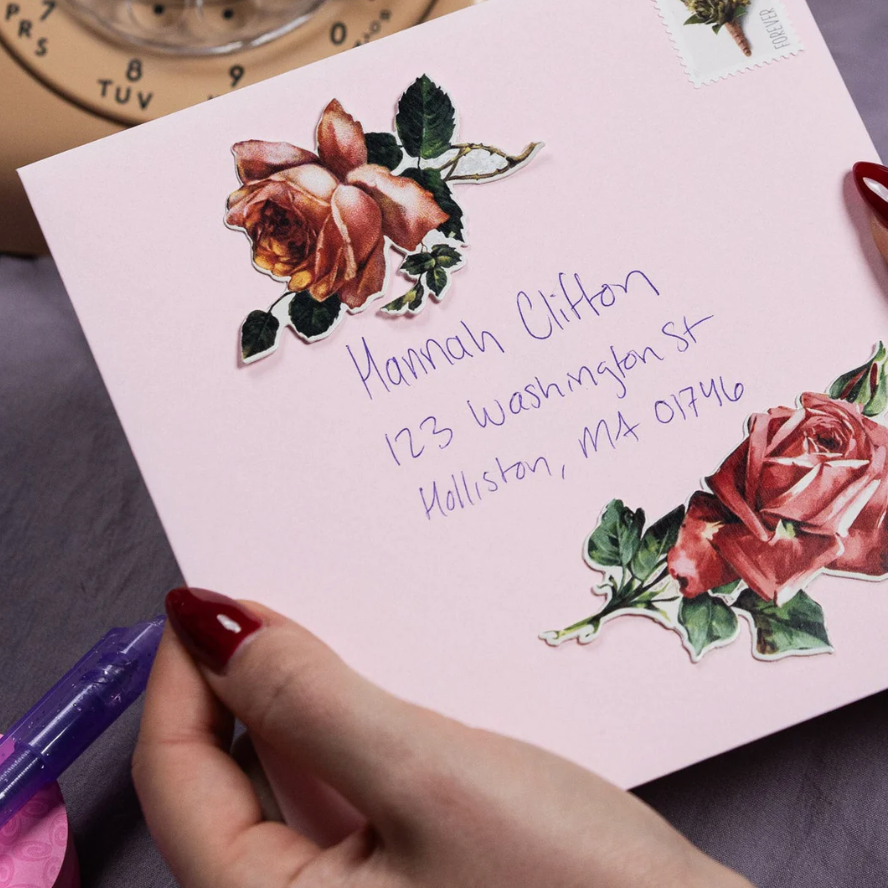 7
PRS
8
TUV
9
0
FOREVER
Hannah Clifton
123 Washington St
Holliston, MA 01746